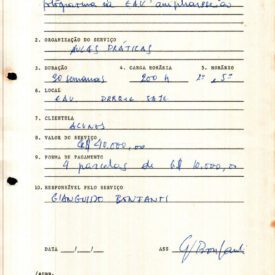 programa na EAV amphasesão
2. ORGANIZAÇÃO DO SERVIÇO
AULAS PRÁTICAS
3. DURAÇÃO 4. CARGA HORÁRIA 5. HORÁRIO
20 semanas 200 h 2º e 5º
6. LOCAL
EAV. PARQUE LAGE
7. CLIENTELA
ALUNOS
8. VALOR DO SERVIÇO
Cr$ 90.000,00
9. FORMA DE PAGAMENTO
9 parcelas de Cr$ 10.000,00
10. RESPONSÁVEL PELO SERVIÇO
GIANGUIDO BONFANTI
DATA ___/___/___ ASS
G/Bonfanti
/ADMM.